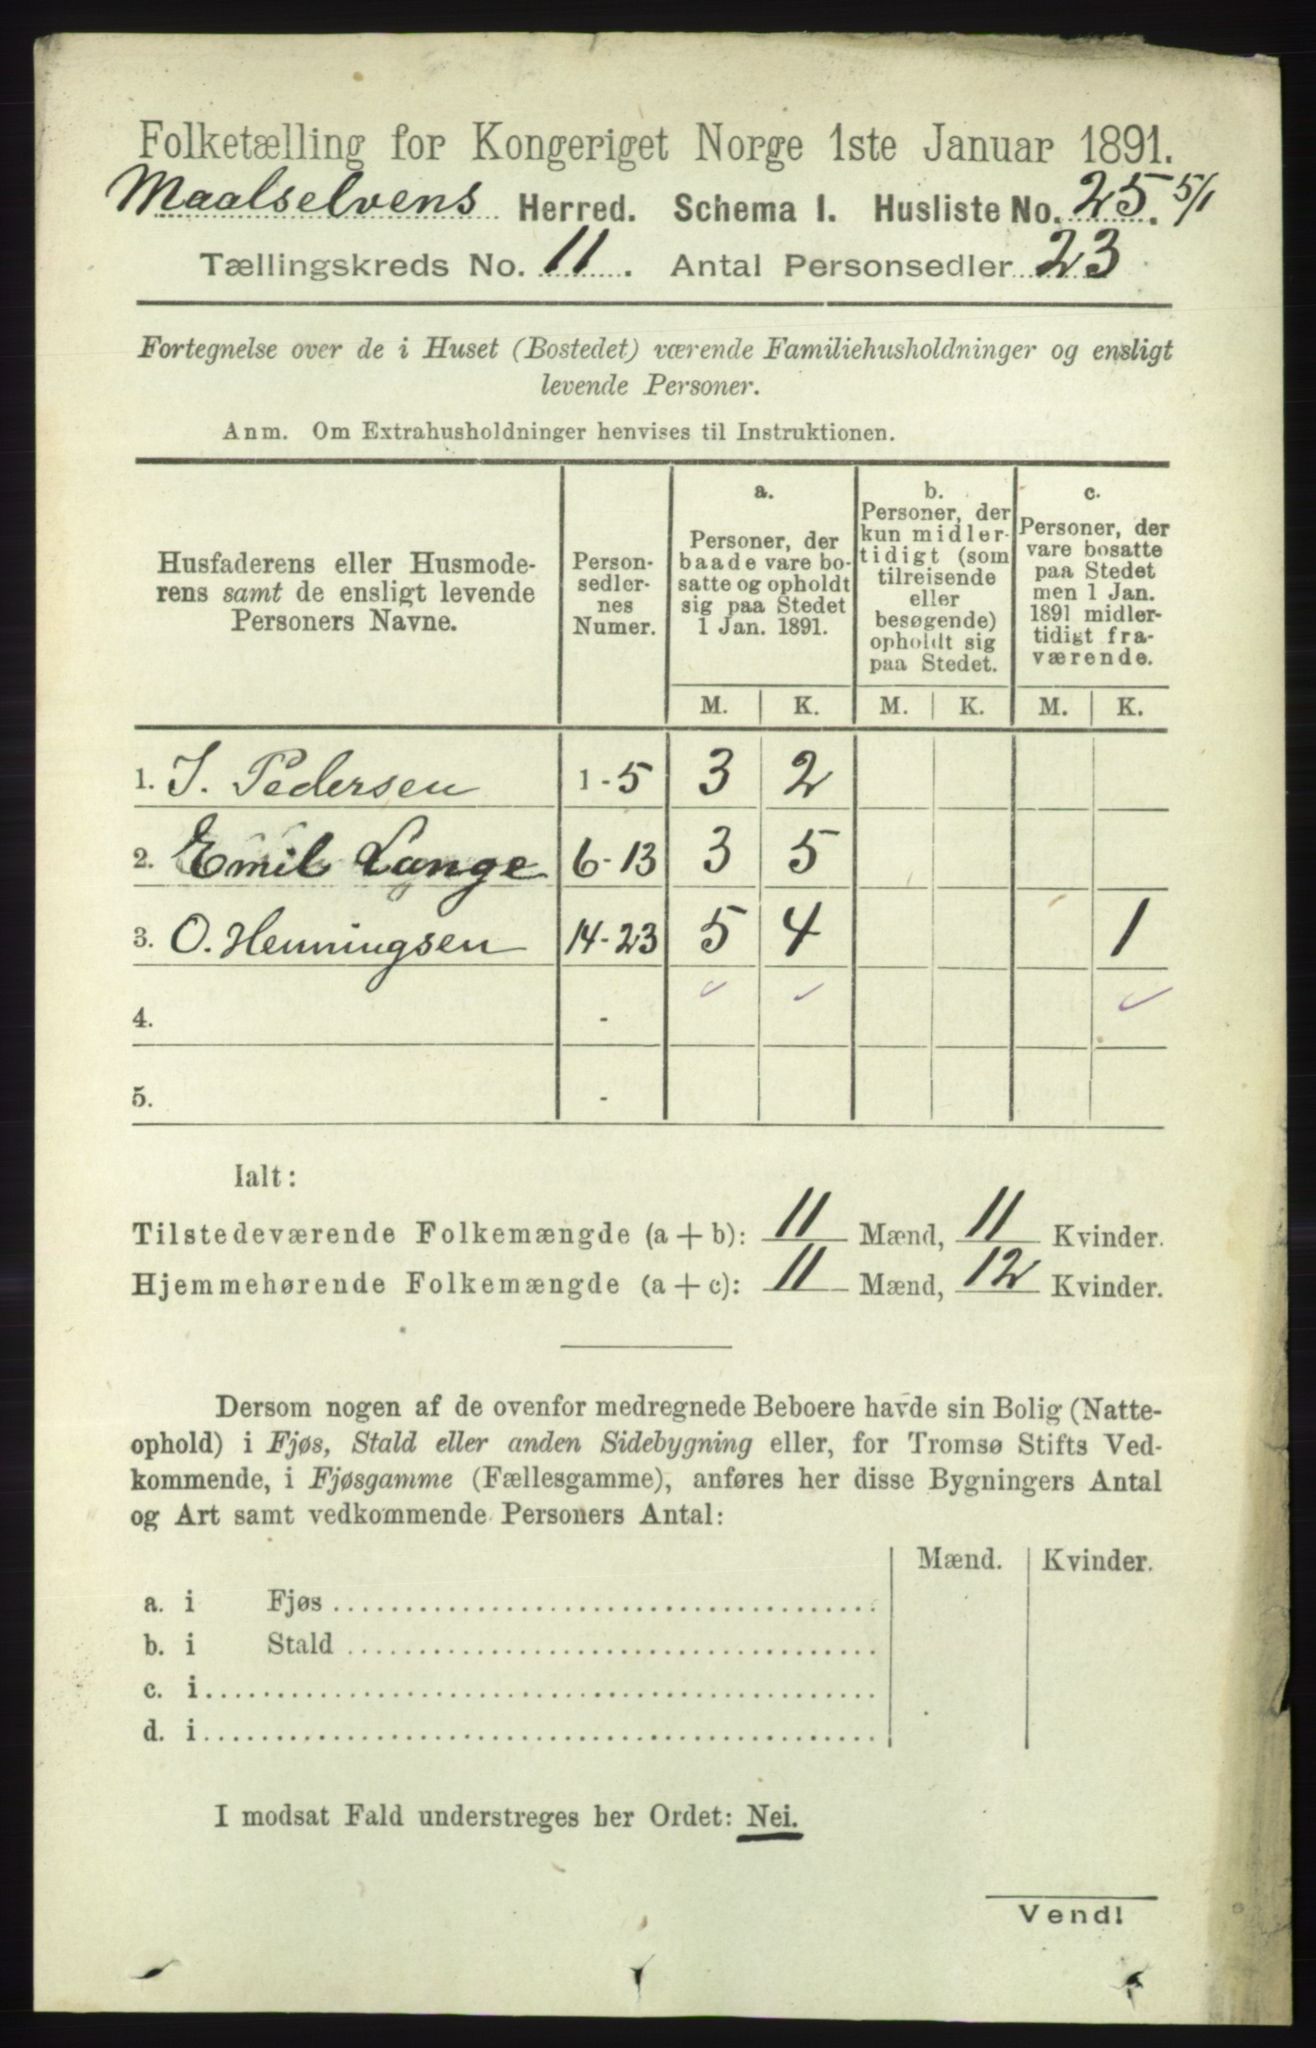 Folketælling for Kongeriget Norge 1ste Januar 1891.
Maalselvens Herred. Schema I. Husliste No. 25. 5/1
Tællingskreds No. 11. Antal Personsedler 23
Fortegnelse over de i Huset (Bostedet) værende Familiehusholdninger og ensligt
levende Personer.
Anm. Om Extrahusholdninger henvises til Instruktionen.
Husfaderens eller Husmode-
rens samt de ensligt levende
Personers Navne.
Person-
sedler-
nes
Numer.
a.
Personer, der
baade vare bo-
satte og opholdt
sig paa Stedet
1 Jan. 1891.
b.
Personer, der
kun midler-
tidigt (som
tilreisende
eller
besøgende)
opholdt sig
paa Stedet.
c.
Personer, der
vare bosatte
paa Stedet
men 1 Jan.
1891 midler-
tidigt fra-
værende.
M. K. M. K. M. K.
1. I. Pedersen 1-5 3 2
2. Emil Lange 6-13 3 5
3. O. Henningsen 14-23 5 4 1
4. -
5. -
Ialt:
Tilstedeværende Folkemængde (a + b): 11 Mænd, 11 Kvinder.
Hjemmehørende Folkemængde (a + c): 11 Mænd, 12 Kvinder.
Dersom nogen af de ovenfor medregnede Beboere havde sin Bolig (Natte-
ophold) i Fjøs, Stald eller anden Sidebygning eller, for Tromsø Stifts Ved-
kommende, i Fjøsgamme (Fællesgamme), anføres her disse Bygningers Antal
og Art samt vedkommende Personers Antal:
Mænd. Kvinder.
a. i Fjøs
b. i Stald
c. i
d. i
I modsat Fald understreges her Ordet: Nei.
Vend!